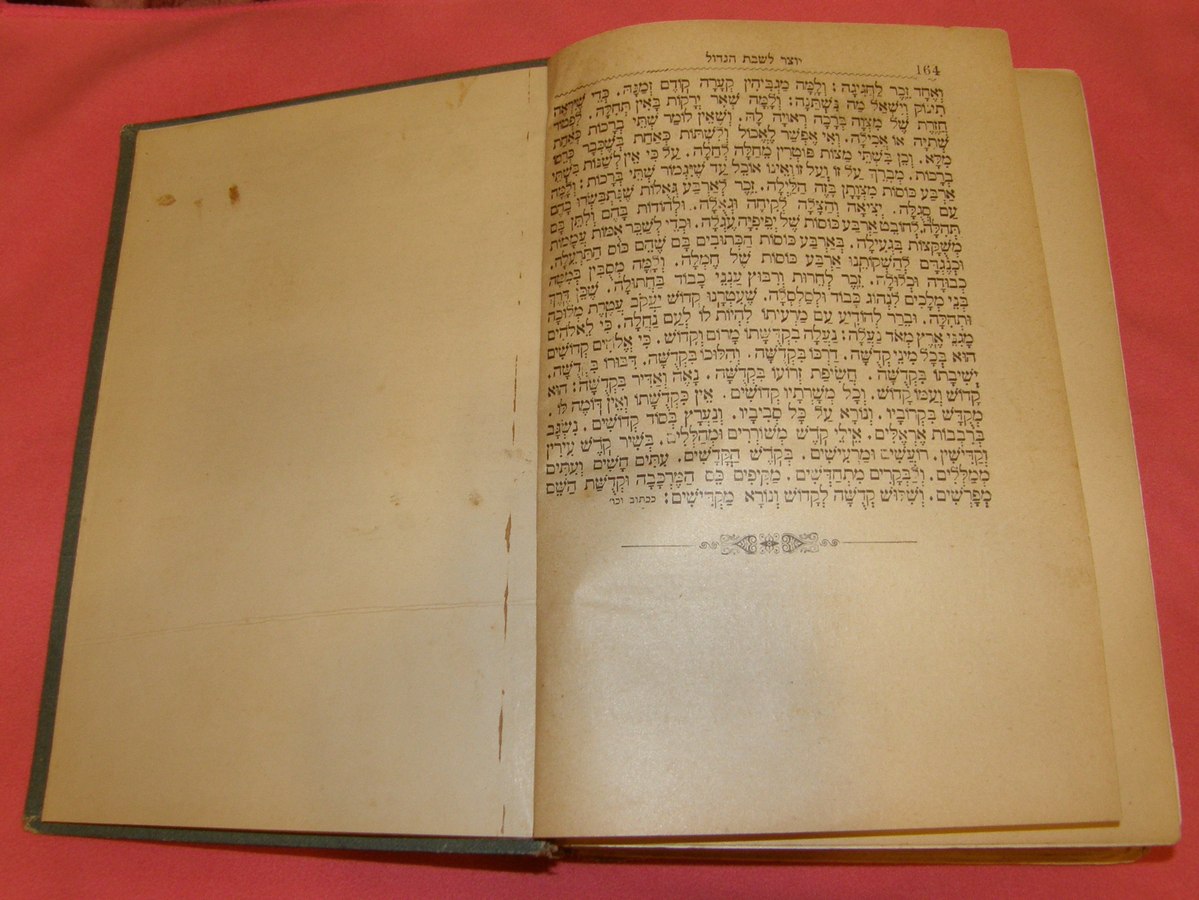 יוצר לשבת הגדול
164
וְאֶחָד זֵכֶר לַחֲגִיגָה: וְלָמָּה מַגְבִּיהִין קְעָרָה קוֹדֶם זְמַנָּהּ. כְּדֵי שֶׁיִּרְאֶה
תִינוֹק וְיִשְׁאַל מַה נִּשְׁתַּנָּה: וְלָמָּה שְׁאָר יְרָקוֹת בָּאִין תְּחִלָּה. לִפְטוֹר
חֲזֶרֶת שֶׁל מִצְוָה בְּרָכָה רְאוּיָה לָהּ. וְשֶׁאֵין לוֹמַר שְׁתֵּי בְרָכוֹת כְּאַחַת
שְׁתִיָּה אוֹ אֲכִילָה. וְאִי אֶפְשַׁר לֶאֱכוֹל וְלִשְׁתּוֹת כְּאַחַת בְּשֶׁכְּבָר כְּרֵסוֹ
מָלֵא. וְכֵן בִּשְׁתֵּי מַצּוֹת פּוֹטְרִין מֵחַלָּה לְחַלָּה. עַל כִּי אֵין לְשַׁנּוֹת בִּשְׁתֵּי
בְרָכוֹת. מְבָרֵךְ עַל זוֹ וְעַל זוֹ וְאֵינוֹ אוֹכֵל עַד שֶׁיִּגְמוֹר שְׁתֵּי בְּרָכוֹת: וְלָמָּה
אַרְבַּע כּוֹסוֹת מִצְוָתָן בָּזֶה הַלַּיְלָה. זֵכֶר לְאַרְבַּע גְּאֻלּוֹת שֶׁנִּתְבַּשְּׂרוּ בָהֶם
עַם סְגֻלָּה. יְצִיאָה וְהַצָּלָה לְקִיחָה וּגְאֻלָּה. וּלְהוֹדוֹת בָּהֶם וְלִתֵּן בָּם
תְּהִלָּה. אַרְבַּע כּוֹסוֹת שֶׁל יְפֵיפִיָּה עֶגְלָה. וּכְדֵי לְשַׁבֵּר אֻמּוֹת עֲמָמִית
מְשֻׁקָּצוֹת בִּגְעִילָה. בְּאַרְבַּע כּוֹסוֹת הַכְּתוּבִים בָּם שֶׁהֵם כּוֹס הַתַּרְעֵלָה.
וּכְנֶגְדָּם לְהַשְׁקוֹתֵנוּ אַרְבַּע כּוֹסוֹת שֶׁל חֶמְלָה. וְלָמָּה מְסֻבִּין בְּמִטָּה
כְבוּדָּה וּכְלוּלָה. זֵכֶר לְחֵרוּת וְרִבּוּץ עַנְנֵי כָבוֹד בַּחֲתוּלָה. שֶׁכֵּן דֶּרֶךְ
בְּנֵי מְלָכִים לִנְהוֹג כָּבוֹד וּלְסַלְסְלָהּ. שֶׁעִטְּרָנוּ קְדוֹשׁ יַעֲקֹב עֲטֶרֶת מְלוּכָה
וּתְהִלָּה. וּבֵרַר לְהוֹדִיעַ עַם מַרְעִיתוֹ לִהְיוֹת לוֹ לְעַם נַחֲלָה. כִּי לֵאלֹהִים
מָגִנֵּי אֶרֶץ מְאֹד נַעֲלָה: נַעֲלָה בִקְדֻשָּׁתוֹ מָרוֹם וְקָדוֹשׁ. כִּי אֱלֹהִים קְדוֹשִׁים
הוּא בְּכָל מִינֵי קְדֻשָּׁה. דַּרְכּוֹ בִּקְדֻשָּׁה. וְהִלּוּכוֹ בִּקְדֻשָּׁה. דִּבּוּרוֹ בִּקְדֻשָּׁה.
יְשִׁיבָתוֹ בִּקְדֻשָּׁה. חֲשִׂיפַת זְרוֹעוֹ בִּקְדֻשָּׁה. נָאֶה וְאַדִּיר בִּקְדֻשָּׁה: הוּא
קָדוֹשׁ וְעַמּוֹ קָדוֹשׁ. וְכָל מְשָׁרְתָיו קְדוֹשִׁים. אֵין כִּקְדֻשָּׁתוֹ וְאֵין דּוֹמֶה לוֹ.
מְקֻדָּשׁ בִּקְרוֹבָיו. וְנוֹרָא עַל כָּל סְבִיבָיו. וְנַעֲרָץ בְּסוֹד קְדוֹשִׁים. נִשְׂגָּב
בְּרִבְבוֹת אֶרְאֶלִּים. אֵילֵי קֹדֶשׁ מְשׁוֹרְרִים וּמְהַלְלִים. בְּשִׁיר קֹדֶשׁ עִירִין
וְקַדִּישִׁין. רוֹעֲשִׁים וּמַרְעִישִׁים. בְּקֹדֶשׁ הַקֳּדָשִׁים. עִתִּים חָשִׁים וְעִתִּים
מְמַלְּלִים. וְלַבְּקָרִים מִתְחַדְּשִׁים. מַקִּיפִים כֵּס הַמֶּרְכָּבָה וּקְדֻשַּׁת הַשֵּׁם
מְפָרְשִׁים. וְשִׁלּוּשׁ קְדֻשָּׁה לְקָדוֹשׁ וְנוֹרָא מַקְדִּישִׁים: ככתוב וכו׳